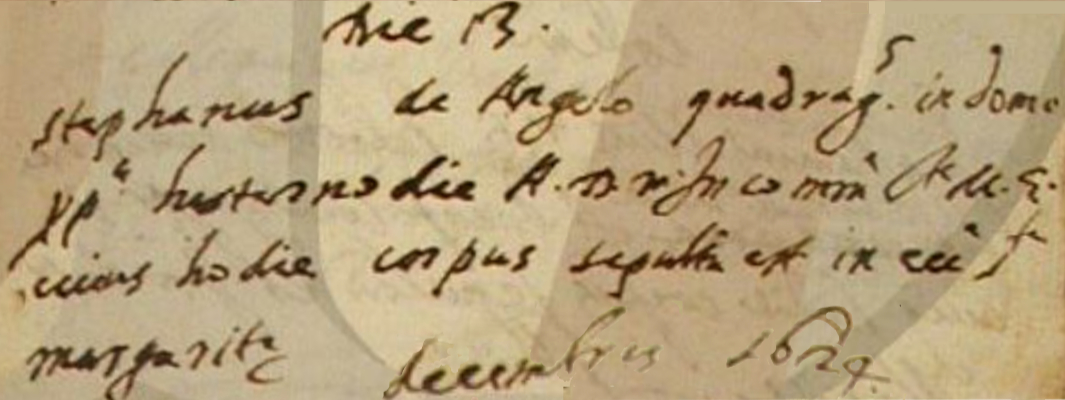 Die 13.
stephanus de Angelo quadrag.s in domo
ppa hesterno die A. nr. In com̃ S. M. E.
cuius hodie corpus sepultũ est in ecc̃ Sta
margaritę decembris 1624